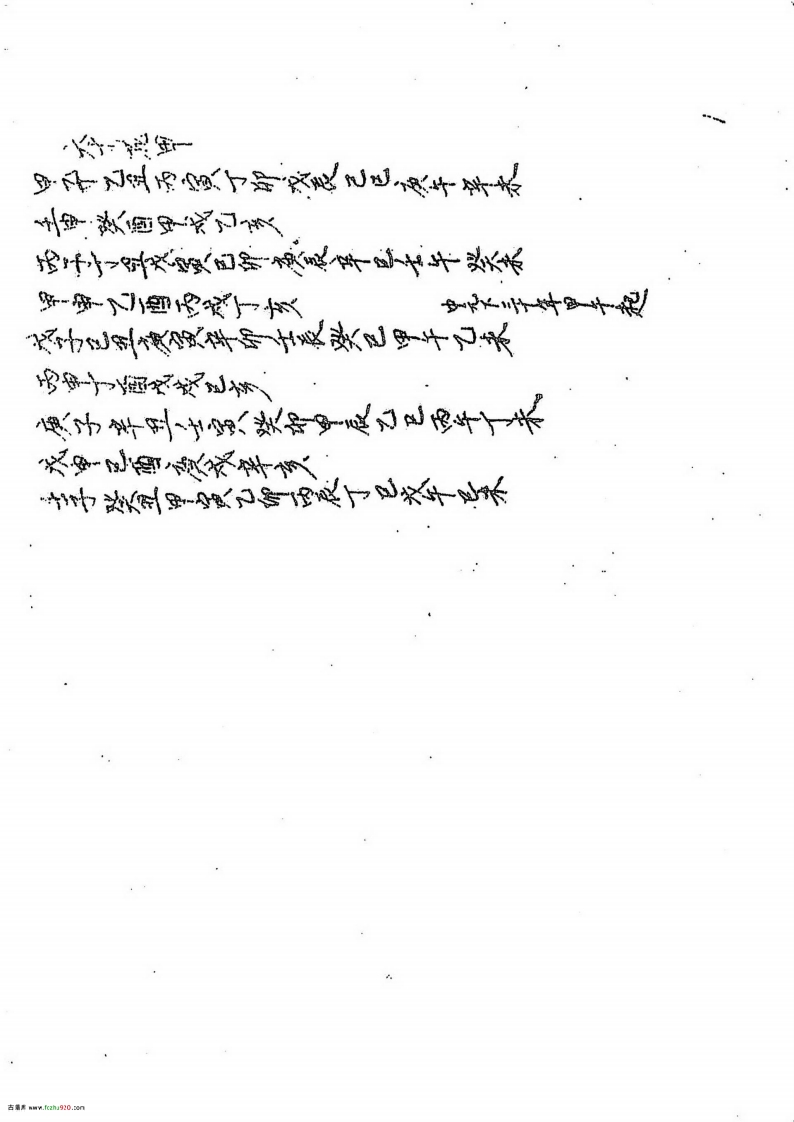 六十花甲
甲子乙丑丙寅丁卯戊辰己巳庚午辛未
壬申癸酉甲戌乙亥
丙子丁丑戊寅己卯庚辰辛巳壬午癸未
甲申乙酉丙戌丁亥
年甲午起
戊子己丑庚寅辛卯壬辰癸巳甲午乙未
丙申丁酉戊戌己亥
庚子辛丑壬寅癸卯甲辰乙巳丙午丁未
戊申己酉庚戌辛亥
壬子癸丑甲寅乙卯丙辰丁巳戊午己未
www.fczhu920.com